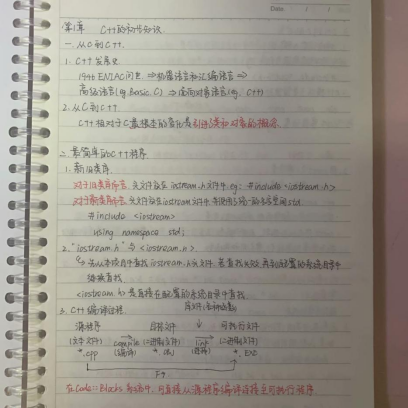 Date / /
第1章 C++的初步知识
一. 从C到C++.
1. C++发展史
1946 ENIAC问世 ⇒机器语言和汇编语言 ⇒
高级语言(eg. Basic. C) ⇒ 面向对象语言(eg. C++)
2. 从C到C++
C++相对于C最根本的变化是引进类和对象的概念.
二. 最简单的C++程序
1. 新旧类库.
对于旧类库而言, 头文件放在iostream.h文件中. eg: #include <iostream.h>
对于新类库而言, 头文件放在iostream文件中并使用了统一的命名空间std.
#include <iostream>
using namespace std;
2. "iostream.h"与<iostream.h>
先从本项目中查找iostream.h头文件, 若查找失败, 再到配置的系统目录中
继续查找
<iostream.h>是直接在配置的系统目录中查找.
3. C++编译过程
库文件
源程序 目标文件 可执行文件
(文本文件) compile (二进制文件) link (二进制文件)
*.cpp (编译) *.obj (连接) *.EXE
F9
在Code::Blocks系统中, 可直接从源程序编译连接至可执行程序.